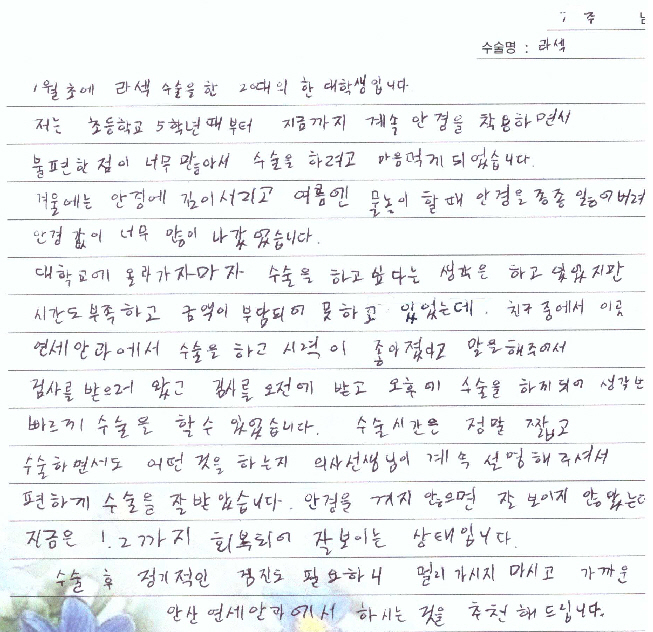 주
수술명 : 라섹
1월 초에 라섹 수술을 한 20대의 한 대학생입니다
저는 초등학교 5학년때부터 지금까지 계속 안경을 착용하면서
불편한 점이 너무 많아서 수술을 하려고 마음먹게 되었습니다.
겨울에는 안경에 김이서리고 여름엔 물놀이 할때 안경을 종종 잃어버려
안경 값이 너무 많이 나갔었습니다.
대학교에 올라가자마자 수술을 하고 싶다는 생각은 하고 있었지만
시간도 부족하고 금액이 부담되어 못하고 있었는데. 친구 중에서 이곳
연세안과에서 수술을 하고 시력이 좋아졌다고 말을해주어서
검사를 받으러 왔고 검사를 오전에 받고 오후에 수술을 하게되어 생각보
빠르게 수술을 할수 있었습니다. 수술시간은 정말 짧고
수술하면서도 어떤 것을 하는지 의사선생님이 계속 설명해주셔서
편하게 수술을 잘받았습니다. 안경을 끼지 않으면 잘 보이지 않았는데
지금은 1.2까지 회복되어 잘보이는 상태입니다.
수술 후 정기적인 검진도 필요하니 멀리가시지 마시고 가까운
안산 연세안과에서 하시는 것을 추천해드립니다.